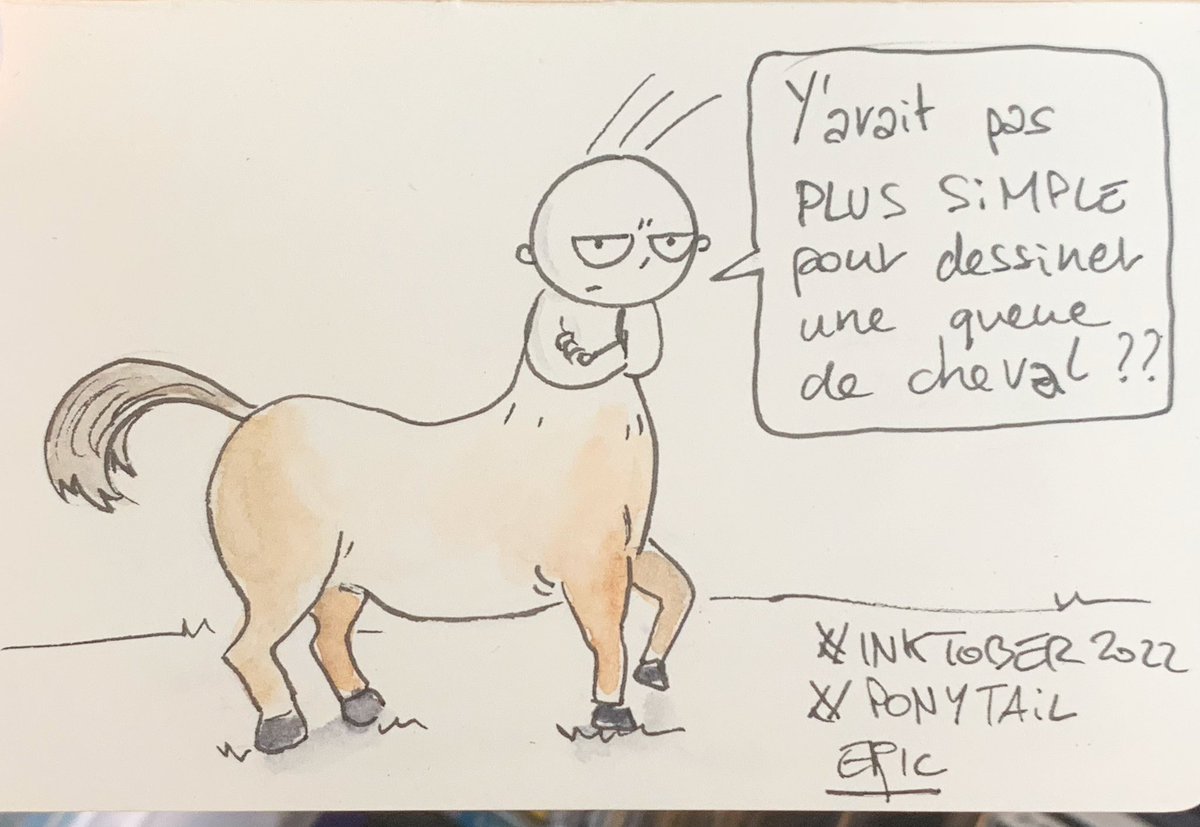 Y'avait pas
PLUS SiMPLE
pour dessiner
une queue
de cheval ??
#INKTOBER2022
#PONYTAiL
ERIC